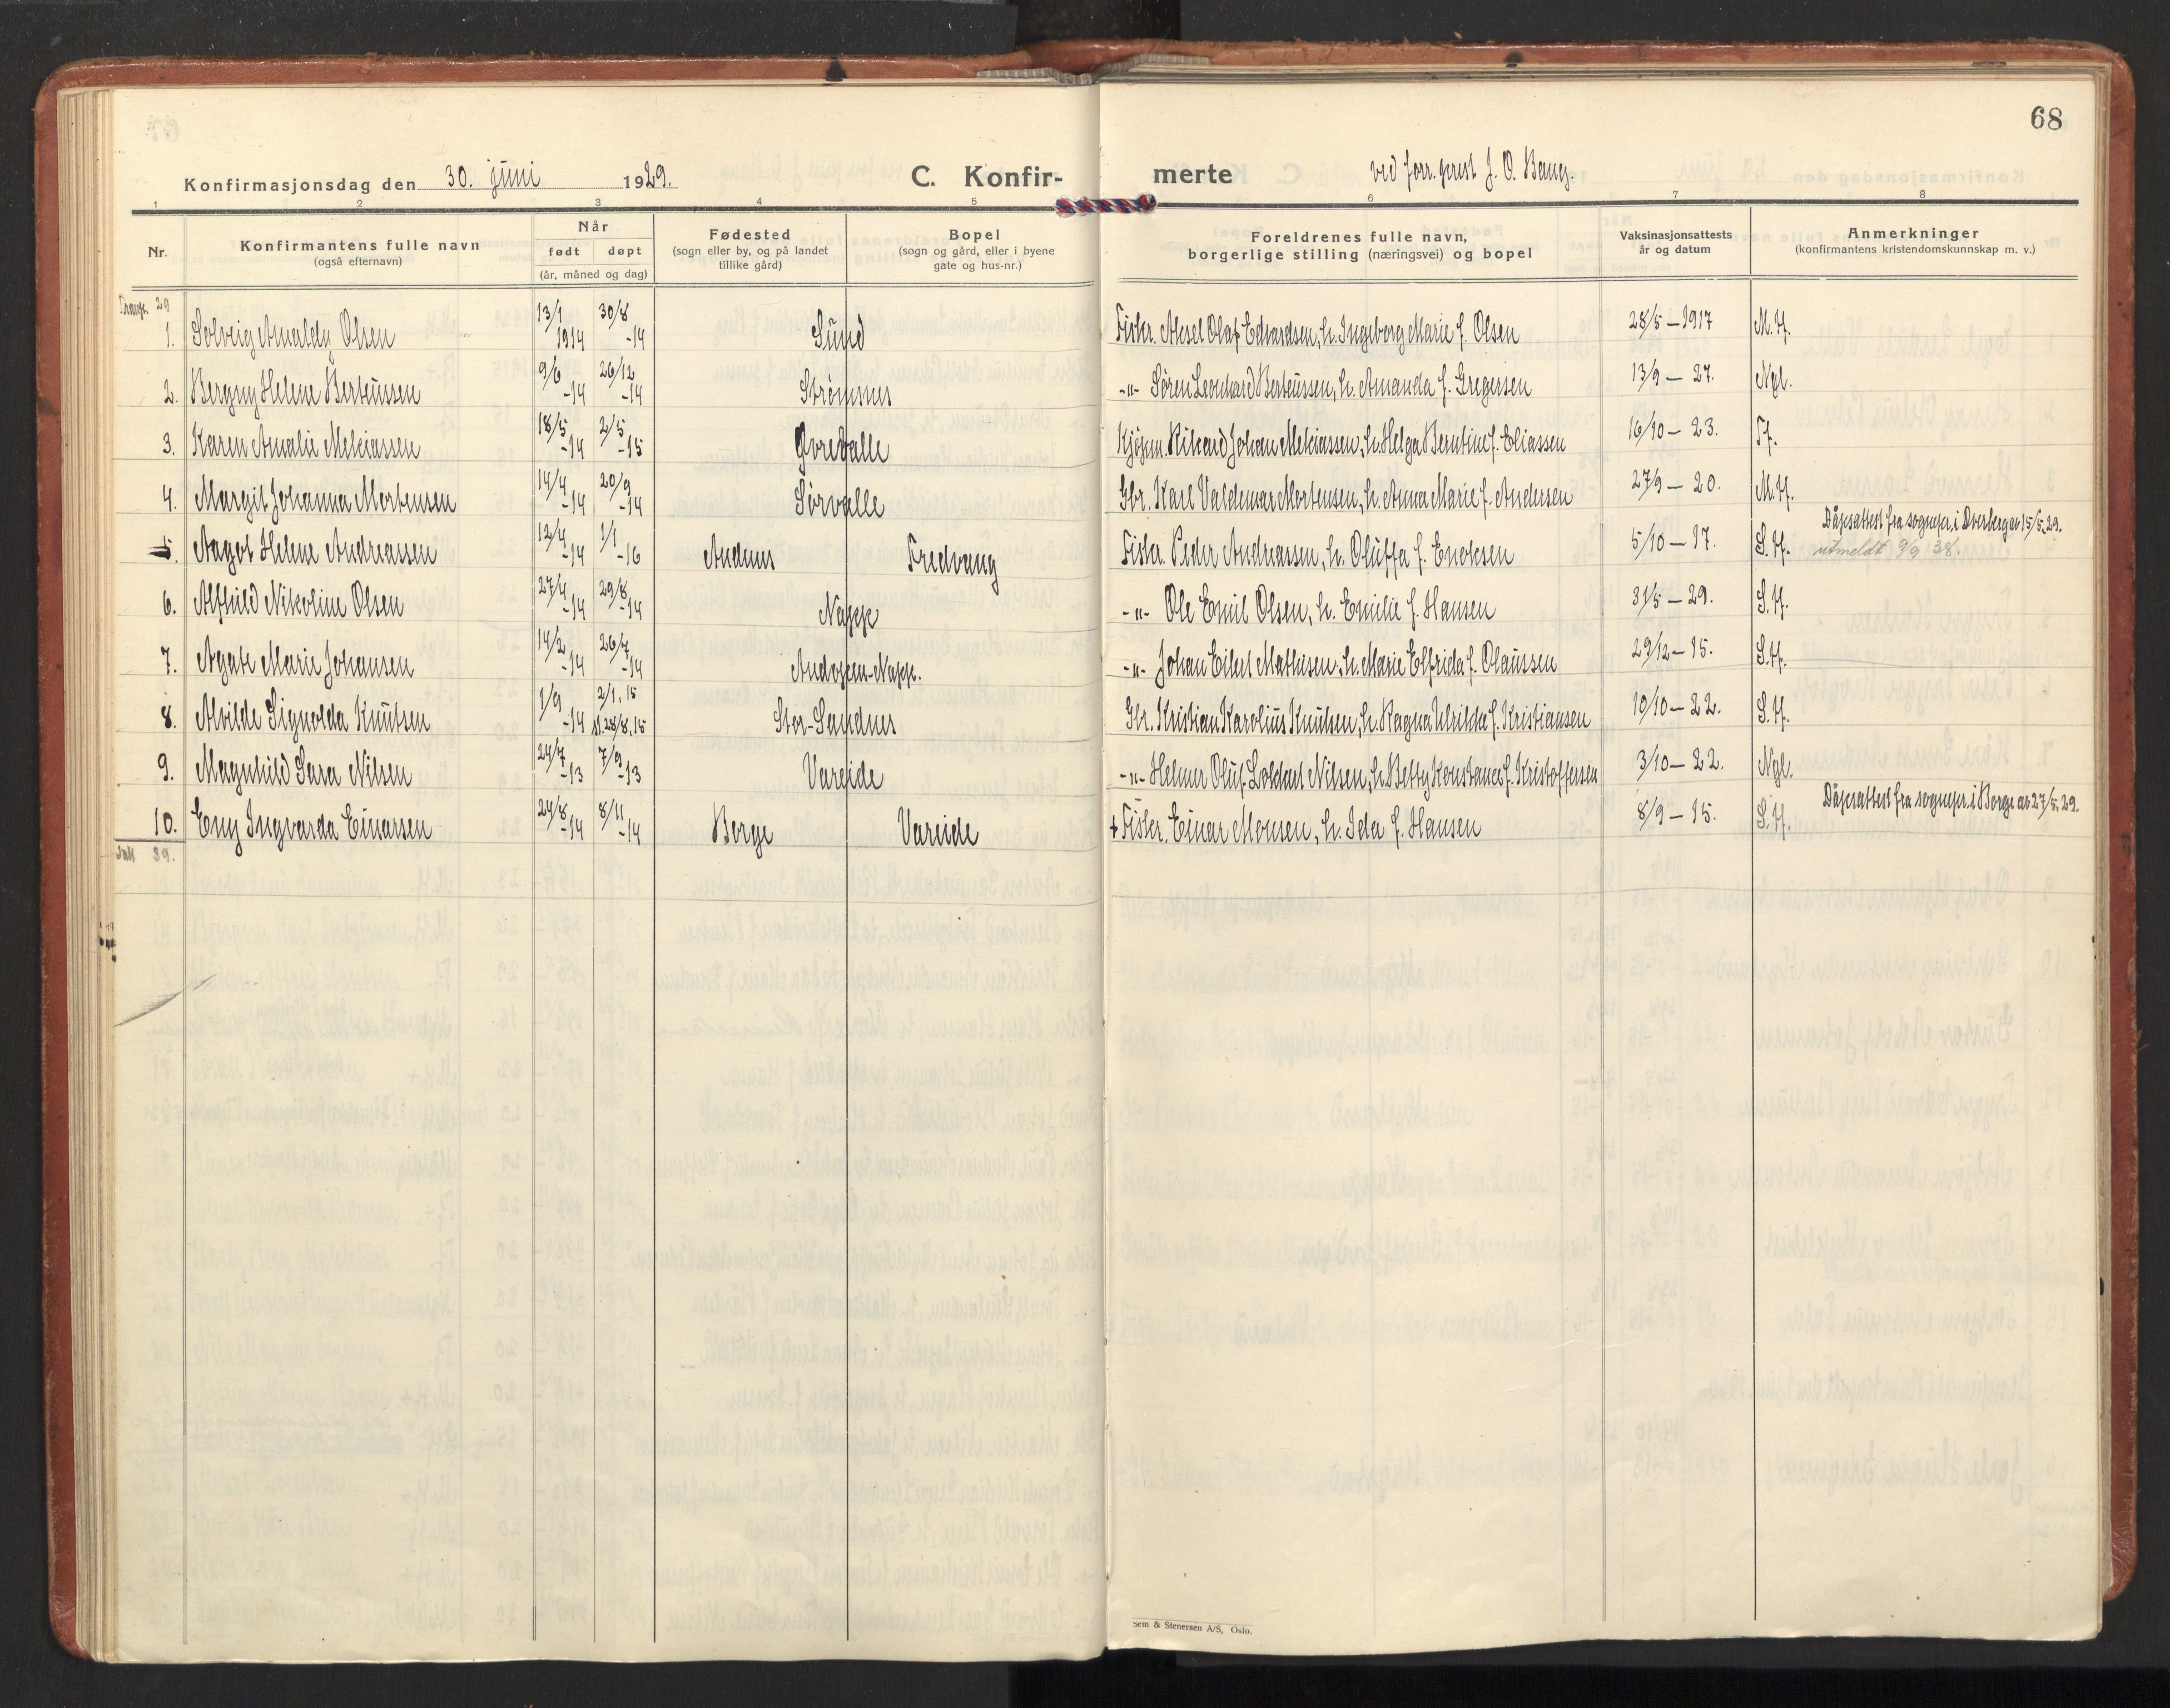 68
Konfirmasjonsdag den 30. juni 1929. C. Konfir- merte ved forr. prest J. O. Bang.
1 2 3 4 5 6 7 8
Nr. Konfirmantens fulle navn (også efternavn) Når født døpt (år, måned og dag) Fødested (sogn eller by, og på landet tillike gård) Bopel (sogn og gård, eller i byene gate og hus-nr.) Foreldrenes fulle navn, borgerlige stilling (næringsvei) og bopel Vaksinasjonsattests år og datum Anmerkninger (konfirmantens kristendomskunnskap m. v.)
29
1. Solveig Amaldy Olsen 13/1 1914 30/8 -14 Sund Fisker. Aksel Olaf Edvardsen, h. Ingeborg Marie f. Olsen 28/5 - 1917 M.H.
2. Bergny Helene Berteussen 9/6 -14 26/12 -14 Strømsnes -"- Søren Leonhard Berteussen, h. Amanda f. Gregersen 13/9 - 27. Ngl.
3. Karen Amalie Melciassen 18/5 -14 2/5 -15 Øvrevalle Kjøpm. Rikard Johan Melciassen, h. Helga Berntine f. Eliassen 16/10 - 23. T.f.
4. Margit Johanna Mortensen 14/4 -14 20/9 -14 Sørvalle Gbr. Karl Valdemar Mortensen, h. Anna Marie f. Andersen 27/9 - 20. M.H.
5. Aagot Helene Andreassen 12/4 -14 1/1 -16 Andenes Fredvang Fisker. Peder Andreassen, h. Oluffa f. Enoksen 5/10 - 17. S.H. Dåpsattest fra sognepr. i Dverberg av 15/5. 29.
utmeldt 9/9 38.
6. Alfhild Nikoline Olsen 27/4 -14 29/8 -14 Napp -"- Ole Emil Olsen, h. Emilie f. Hansen 31/5 - 29. S.H.
7. Agate Marie Johansen 14/2 -14 26/7 -14 Andopen-Napp. -"- Johan Eilert Mathisen, h. Marie Elfrida f. Olaussen 29/12 - 15. S.H.
8. Alvilde Signolda Knutsen 1/9 -14 2/1, 15 st. 28/8, 15 Stor-Sandnes Gbr. Kristian Karolius Knutsen, h. Ragna Ulrikke f. Kristiansen 10/10 - 22. S.H.
9. Magnhild Sara Nilsen 24/7 -13 7/9 -13 Vareide -"- Helmer Oluf Loldart Nilsen, h. Betty Konstance f. Kristoffersen 3/10 - 22. Ngl.
10. Eny Ingvarda Einarsen 24/8 -14 8/11 -14 Borge Vareide + Fisker. Einar Monsen, h. Ida f. Hansen 8/9 - 15. S.H. Dåpsattest fra sognepr. i Borge av 27/5. 29.
39.
Sem & Stenersen A/S, Oslo.